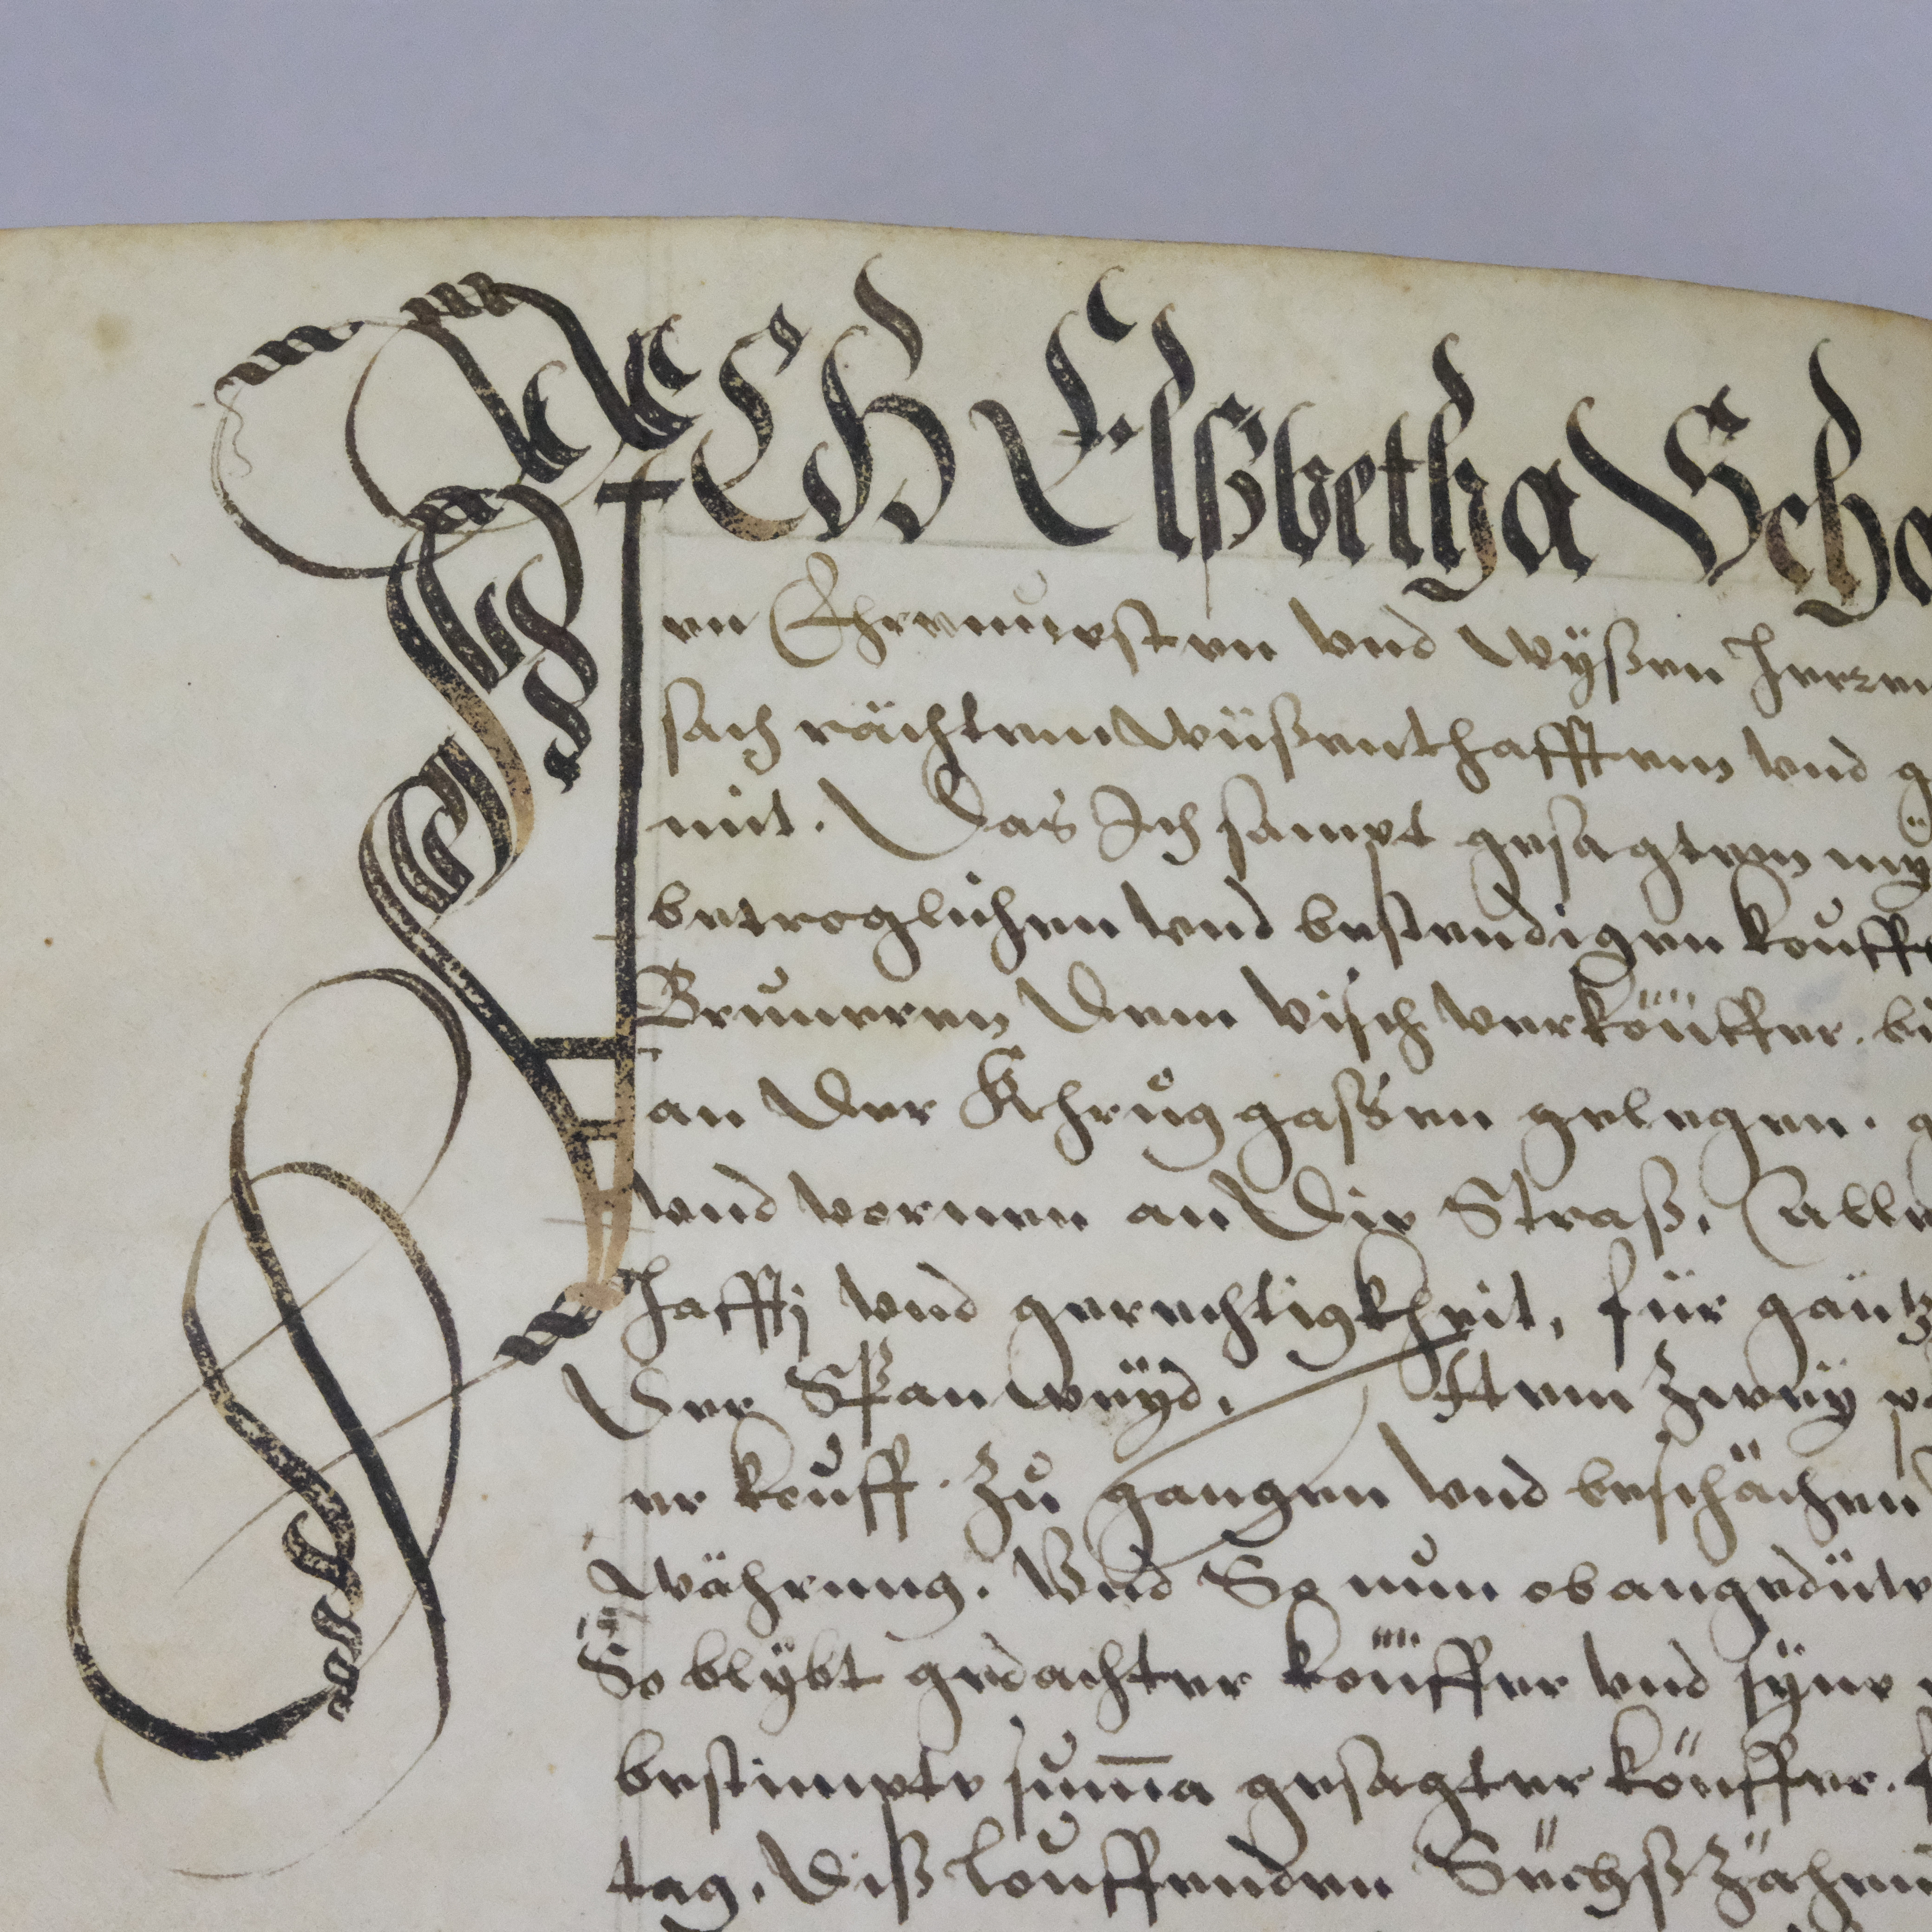 ICH Elßbetha Scha
en Ehrenuesten vnd wyßen herren
sach rächtem wüßenthafftem vnd g
mit. Das Ich sampt gesagtem my
betroglichen vnd bestendigen kouffs
Bruneren dem visch verköüffer. bi
an der Khrůg gaßen gelegen. g
vnd vornen an die Straß, Alle
hafftj vnd gerechtigkheit, für gäntz
der Span weÿd. Item zweÿ
er kouff. zů gangen vnd beschächen
währung. Vnd So nun ob angedüte
So blÿbt gedachter köüffer vnd sÿne
bestimpte sum̅a gesagter köüffer.
tag. diß louffenden Sechßzähen